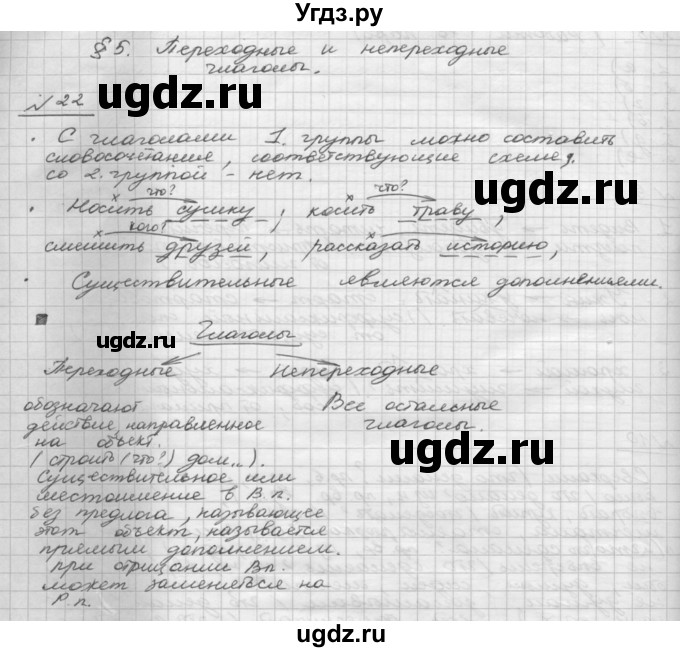 Угдз.ру
§ 5. Переходные и непереходные
глаголы.
№ 22
ugdz.ru
• С глаголами 1. группы можно составить
словосочетание, соответствующие схеме,
со 2. группой - нет.
что? что?
• Носить сумку, косить траву,
кого?
смешить друзей, рассказать историю,
• Существительные являются дополнениями.
ugdz.ru
Глаголы
Переходные Непереходные
обозначают
действие, направленное
на объект.
(строить (что?) дом...).
Существительное или
местоимение в В.п.
без предлога, называющее
этот объект, называется
прямым дополнением.
при отрицании Вп.
может заменяться на
Р.п.
Все остальные
глаголы.
ugdz.ru
ugdz.ru